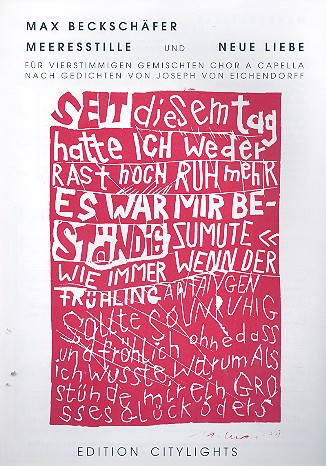 MAX BECKSCHÄFER
MEERESSTILLE UND NEUE LIEBE
FÜR VIERSTIMMIGEN GEMISCHTEN CHOR A CAPELLA
NACH GEDICHTEN VON JOSEPH VON EICHENDORFF
SEIT diesem tag
hatte ICH weder
RAST noch RUH mehR
ES WAR MIR BE-
STÄNDIG ZUMUTE «
WIE IMMER WENN DER
FRÜHLING ANFANGEN
Sollte SO UNRUHIG
und fröhlich ohne dass
ich wusste, warum Als
stünde mir ein GRO
sses GLück oder s
EDITION CITYLIGHTS